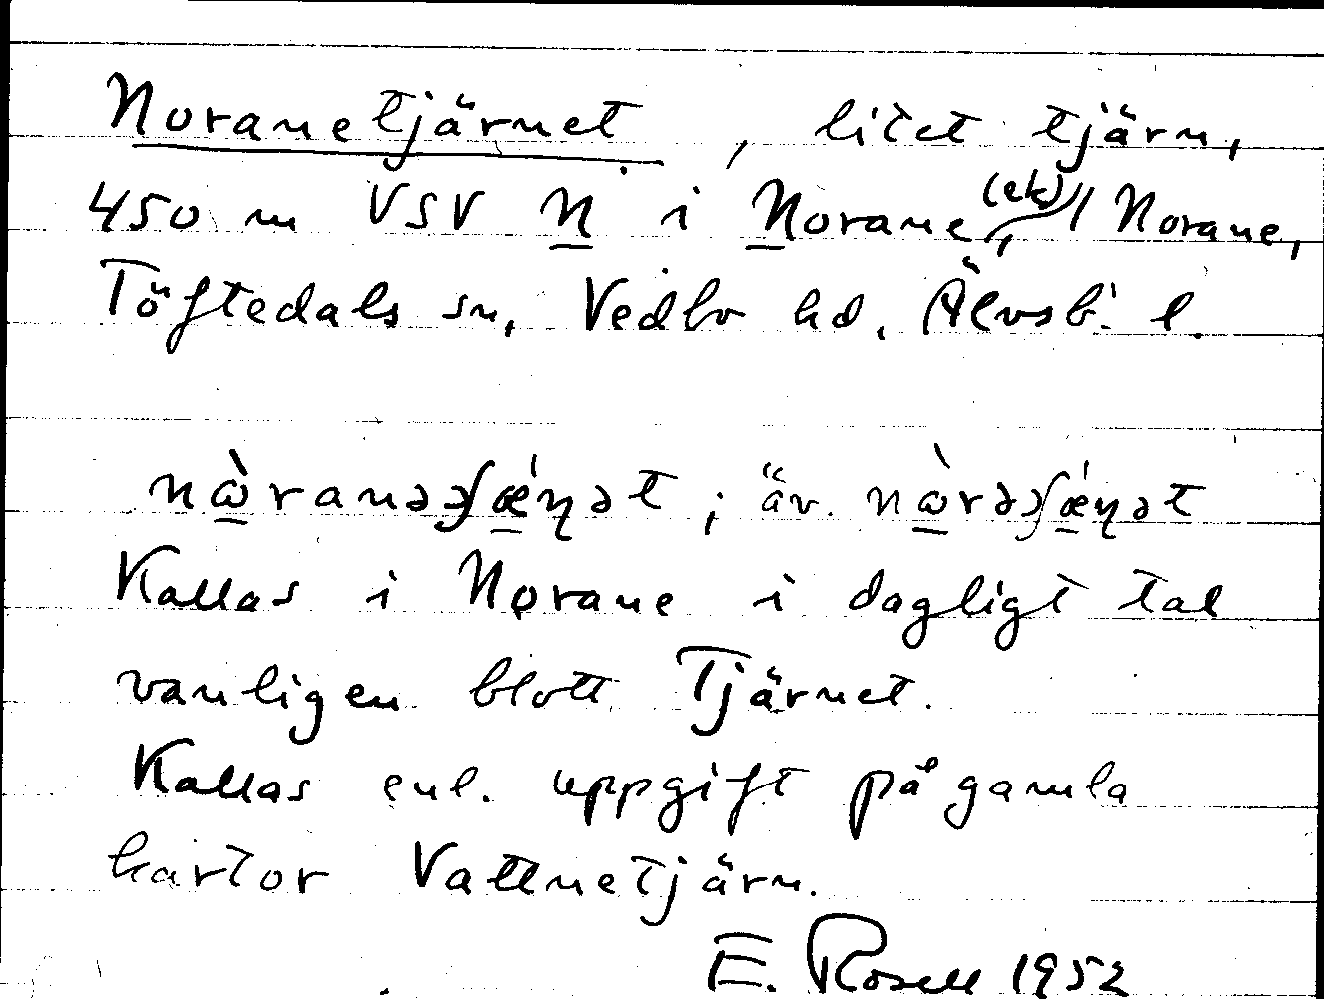 Noranetjärnet, litet tjärn,
450 m VSV N i Norane, (ek) / Norane,
Töftedals sn, Vedbo hd, Älvsb. l.
nὼranəʃǽɳət; äv. nὼrəʃǽɳət
Kallas i Norane i dagligt tal
vanligen blott Tjärnet.
Kallas enl. uppgift på gamla
kartor Vattnetjärn.
E. Rosell 1952